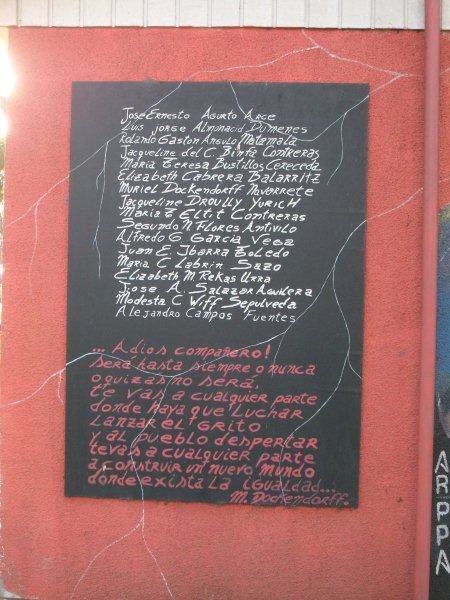 Jose Ernesto Agurto Arce
Luis Jorge Almonacid Dumenes
Rolando Gaston Angulo Matamala
Jacqueline del C. Binfa Contreras
Maria Teresa Bustillos Cereceda
Elizabeth Cabrera Balarritz
Muriel Dockendorff Navarrete
Jacqueline Droully Yurich
Maria T Eltit Contreras
Segundo N. Flores Antivilo
Alfredo G. Garcia Vega
Juan E. Ibarra Toledo
Maria C Labrin Sazo
Elizabeth M. Rekas Urra
Jose A. Salazar Aguilera
Modesta C Wiff Sepulveda
Alejandro Campos Fuentes
... Adios compañero!
sera hasta siempre o nunca
o quizas no sera,
te vas a cualquier parte
donde haya que luchar
lanzar el grito
y al pueblo despertar
te vas a cualquier parte
a construir un nuevo mundo
donde exista la igualdad...
M. Dockendorff.
ARPPA